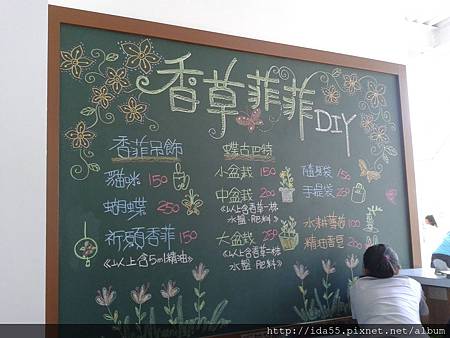 香草菲菲 DIY
香菲吊飾
貓咪 150
蝴蝶 250
祈願香菲 150
(以上含5ml精油)
蝶古巴特
小盆栽 150
中盆栽 200
(以上含香草一株
水盤、肥料)
大盆栽 250
(以上含香草二株
水盤、肥料)
隨身袋 150
手提袋 250
水耕 100
精油香皂 200
http://ida55.pixnet.net/album